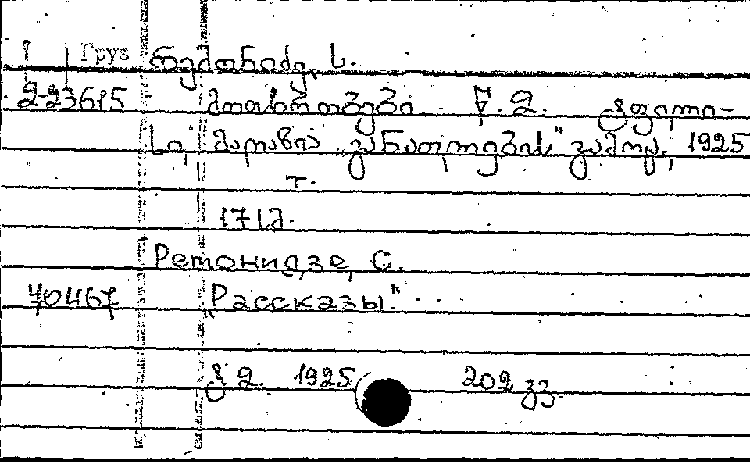 Груз რემონიძე, ს.
2-23615 მოთხრობები წ. 2. ტფილი-
სი, მაღაზია „განათლების" გამოც., 1925
т.
171გ.
Ремонидзе, С.
70467 „Рассказы"
წ 2. 1925 202 გვ.